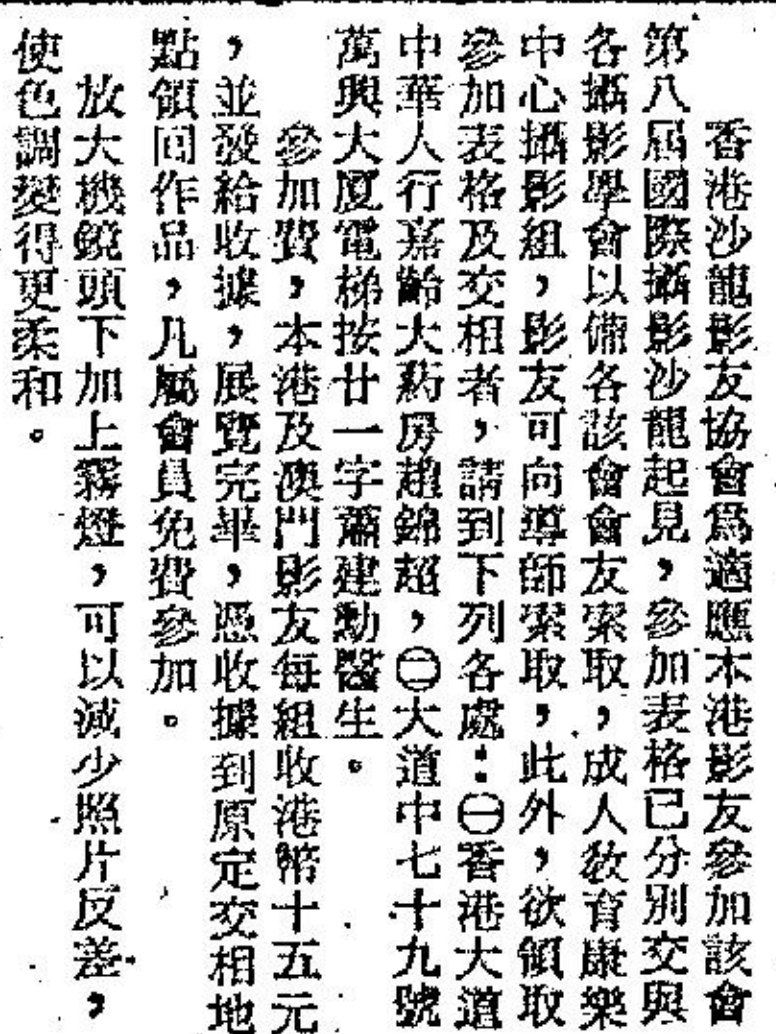 香港沙龍影友協會爲適應本港影友參加該會
第八屆國際攝影沙龍起見，參加表格已分別交與
各攝影學會以備各該會會友索取，成人敎育康樂
中心攝影組，影友可向導師索取，此外，欲領取
參加表格及交相者，請到下列各處：㊀香港大道
中華人行嘉齡大葯房趙錦超，㊁大道中七十九號
萬興大厦電梯按廿一字蕭建勳醫生。
參加費，本港及澳門影友每組收港幣十五元
，並發給收據，展覽完畢，憑收據到原定交相地
點領回作品，凡屬會員免費參加。
放大機鏡頭下加上霧燈，可以減少照片反差，
使色調變得更柔和。